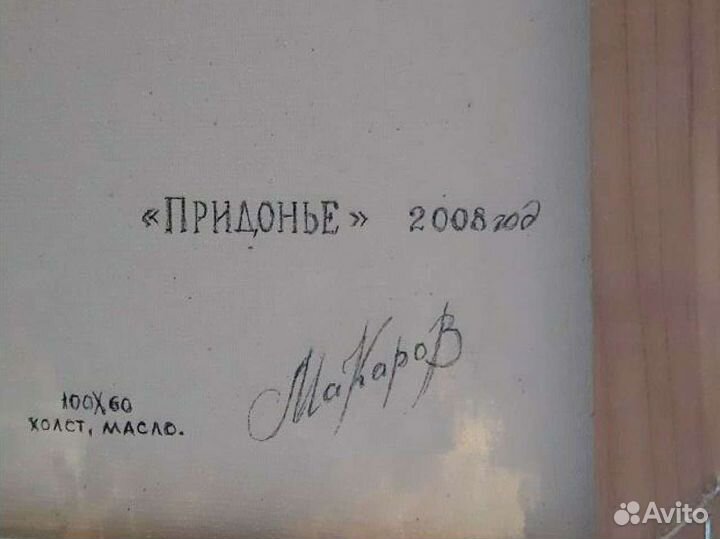 «ПРИДОНЬЕ» 2008 год
Макаров
100X60
ХОЛСТ, МАСЛО.
Avito